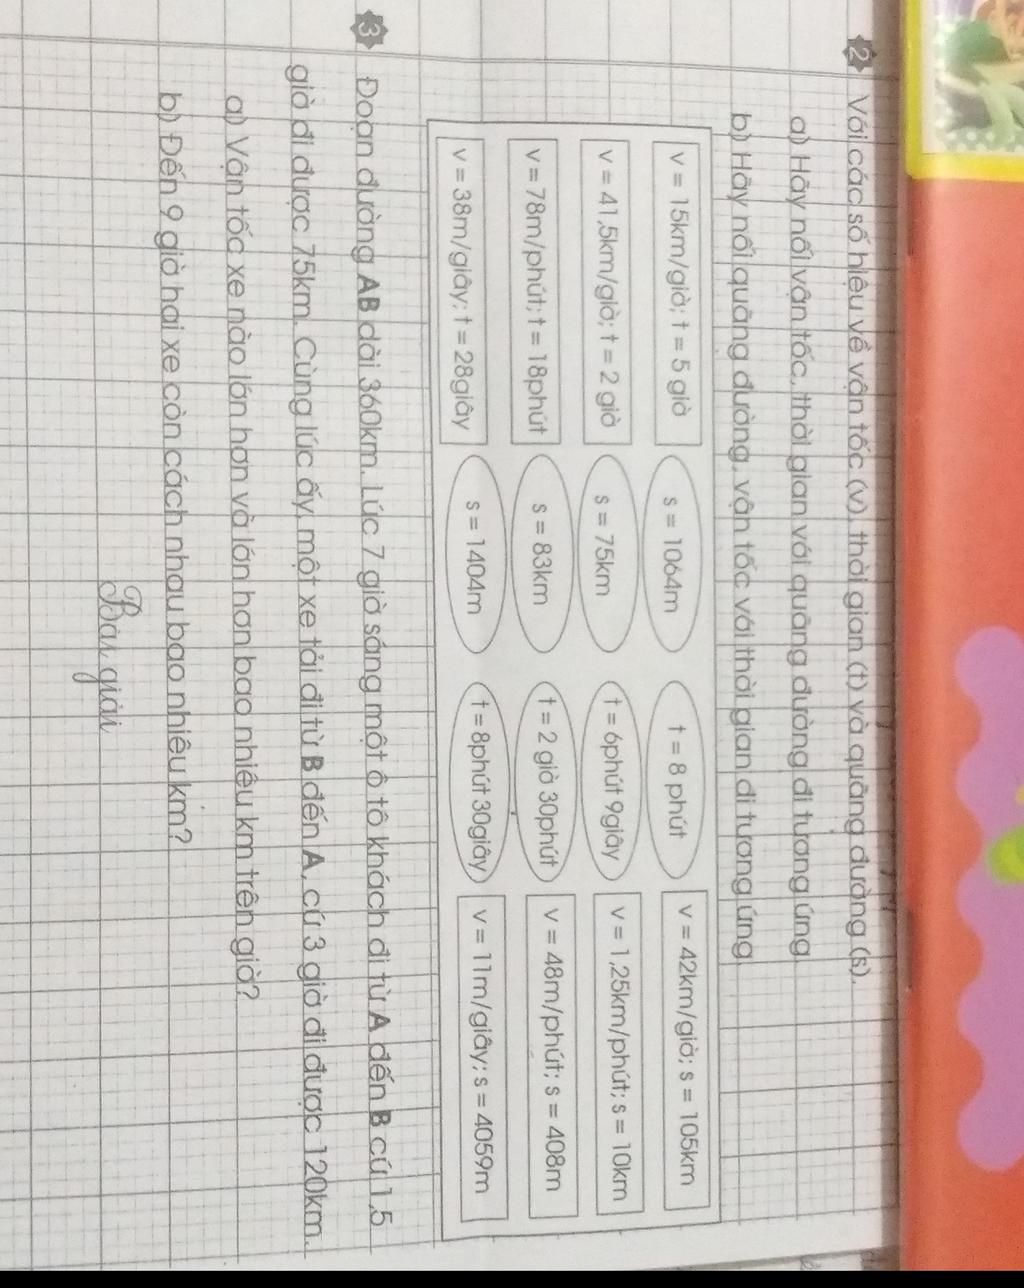 2 Với các số hiệu về vận tốc (v), thời gian (t) và quãng đường (s).
a) Hãy nối vận tốc, thời gian với quãng đường đi tương ứng
b) Hãy nối quãng đường, vận tốc với thời gian đi tương ứng
v = 15km/giờ; t = 5 giờ s = 1064m t = 8 phút v = 42km/giờ; s = 105km
v = 41,5km/giờ; t = 2 giờ s = 75km t = 6phút 9giây v = 1,25km/phút; s = 10km
v = 78m/phút; t = 18phút s = 83km t = 2 giờ 30phút v = 48m/phút; s = 408m
v = 38m/giây; t = 28giây s = 1404m t = 8phút 30giây v = 11m/giây; s = 4059m
3 Đoạn đường AB dài 360km. Lúc 7 giờ sáng một ô tô khách đi từ A đến B cứ 1,5
giờ đi được 75km. Cùng lúc ấy, một xe tải đi từ B đến A, cứ 3 giờ đi được 120km.
a) Vận tốc xe nào lớn hơn và lớn hơn bao nhiêu km trên giờ?
b) Đến 9 giờ hai xe còn cách nhau bao nhiêu km?
Bài giải